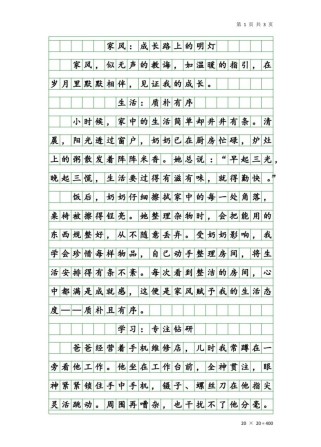 第 1 页 共 3 页
家风：成长路上的明灯
家风，似无声的教诲，如温暖的指引，在
岁月里默默相伴，见证我的成长。
生活：质朴有序
小时候，家中的生活简单却井井有条。清
晨，阳光透过窗户，奶奶已在厨房忙碌，炉灶
上的粥散发着阵阵米香。她总说：“早起三光，
晚起三慌，生活要过得有滋有味，就得勤快。”
饭后，奶奶仔细擦拭家中的每一处角落，
桌椅被擦得锃亮。她整理杂物时，会把能用的
东西规整好，从不随意丢弃。受奶奶影响，我
学会珍惜每样物品，自己动手整理房间，将生
活安排得有条不紊。每次看到整洁的房间，心
中都满是成就感，这便是家风赋予我的生活态
度——质朴且有序。
学习：专注钻研
爸爸经营着手机维修店，儿时我常蹲在一
旁看他工作。他坐在工作台前，全神贯注，眼
神紧紧锁住手中手机，镊子、螺丝刀在他指尖
灵活跳动。周围再嘈杂，也干扰不了他分毫。
20 × 20＝400